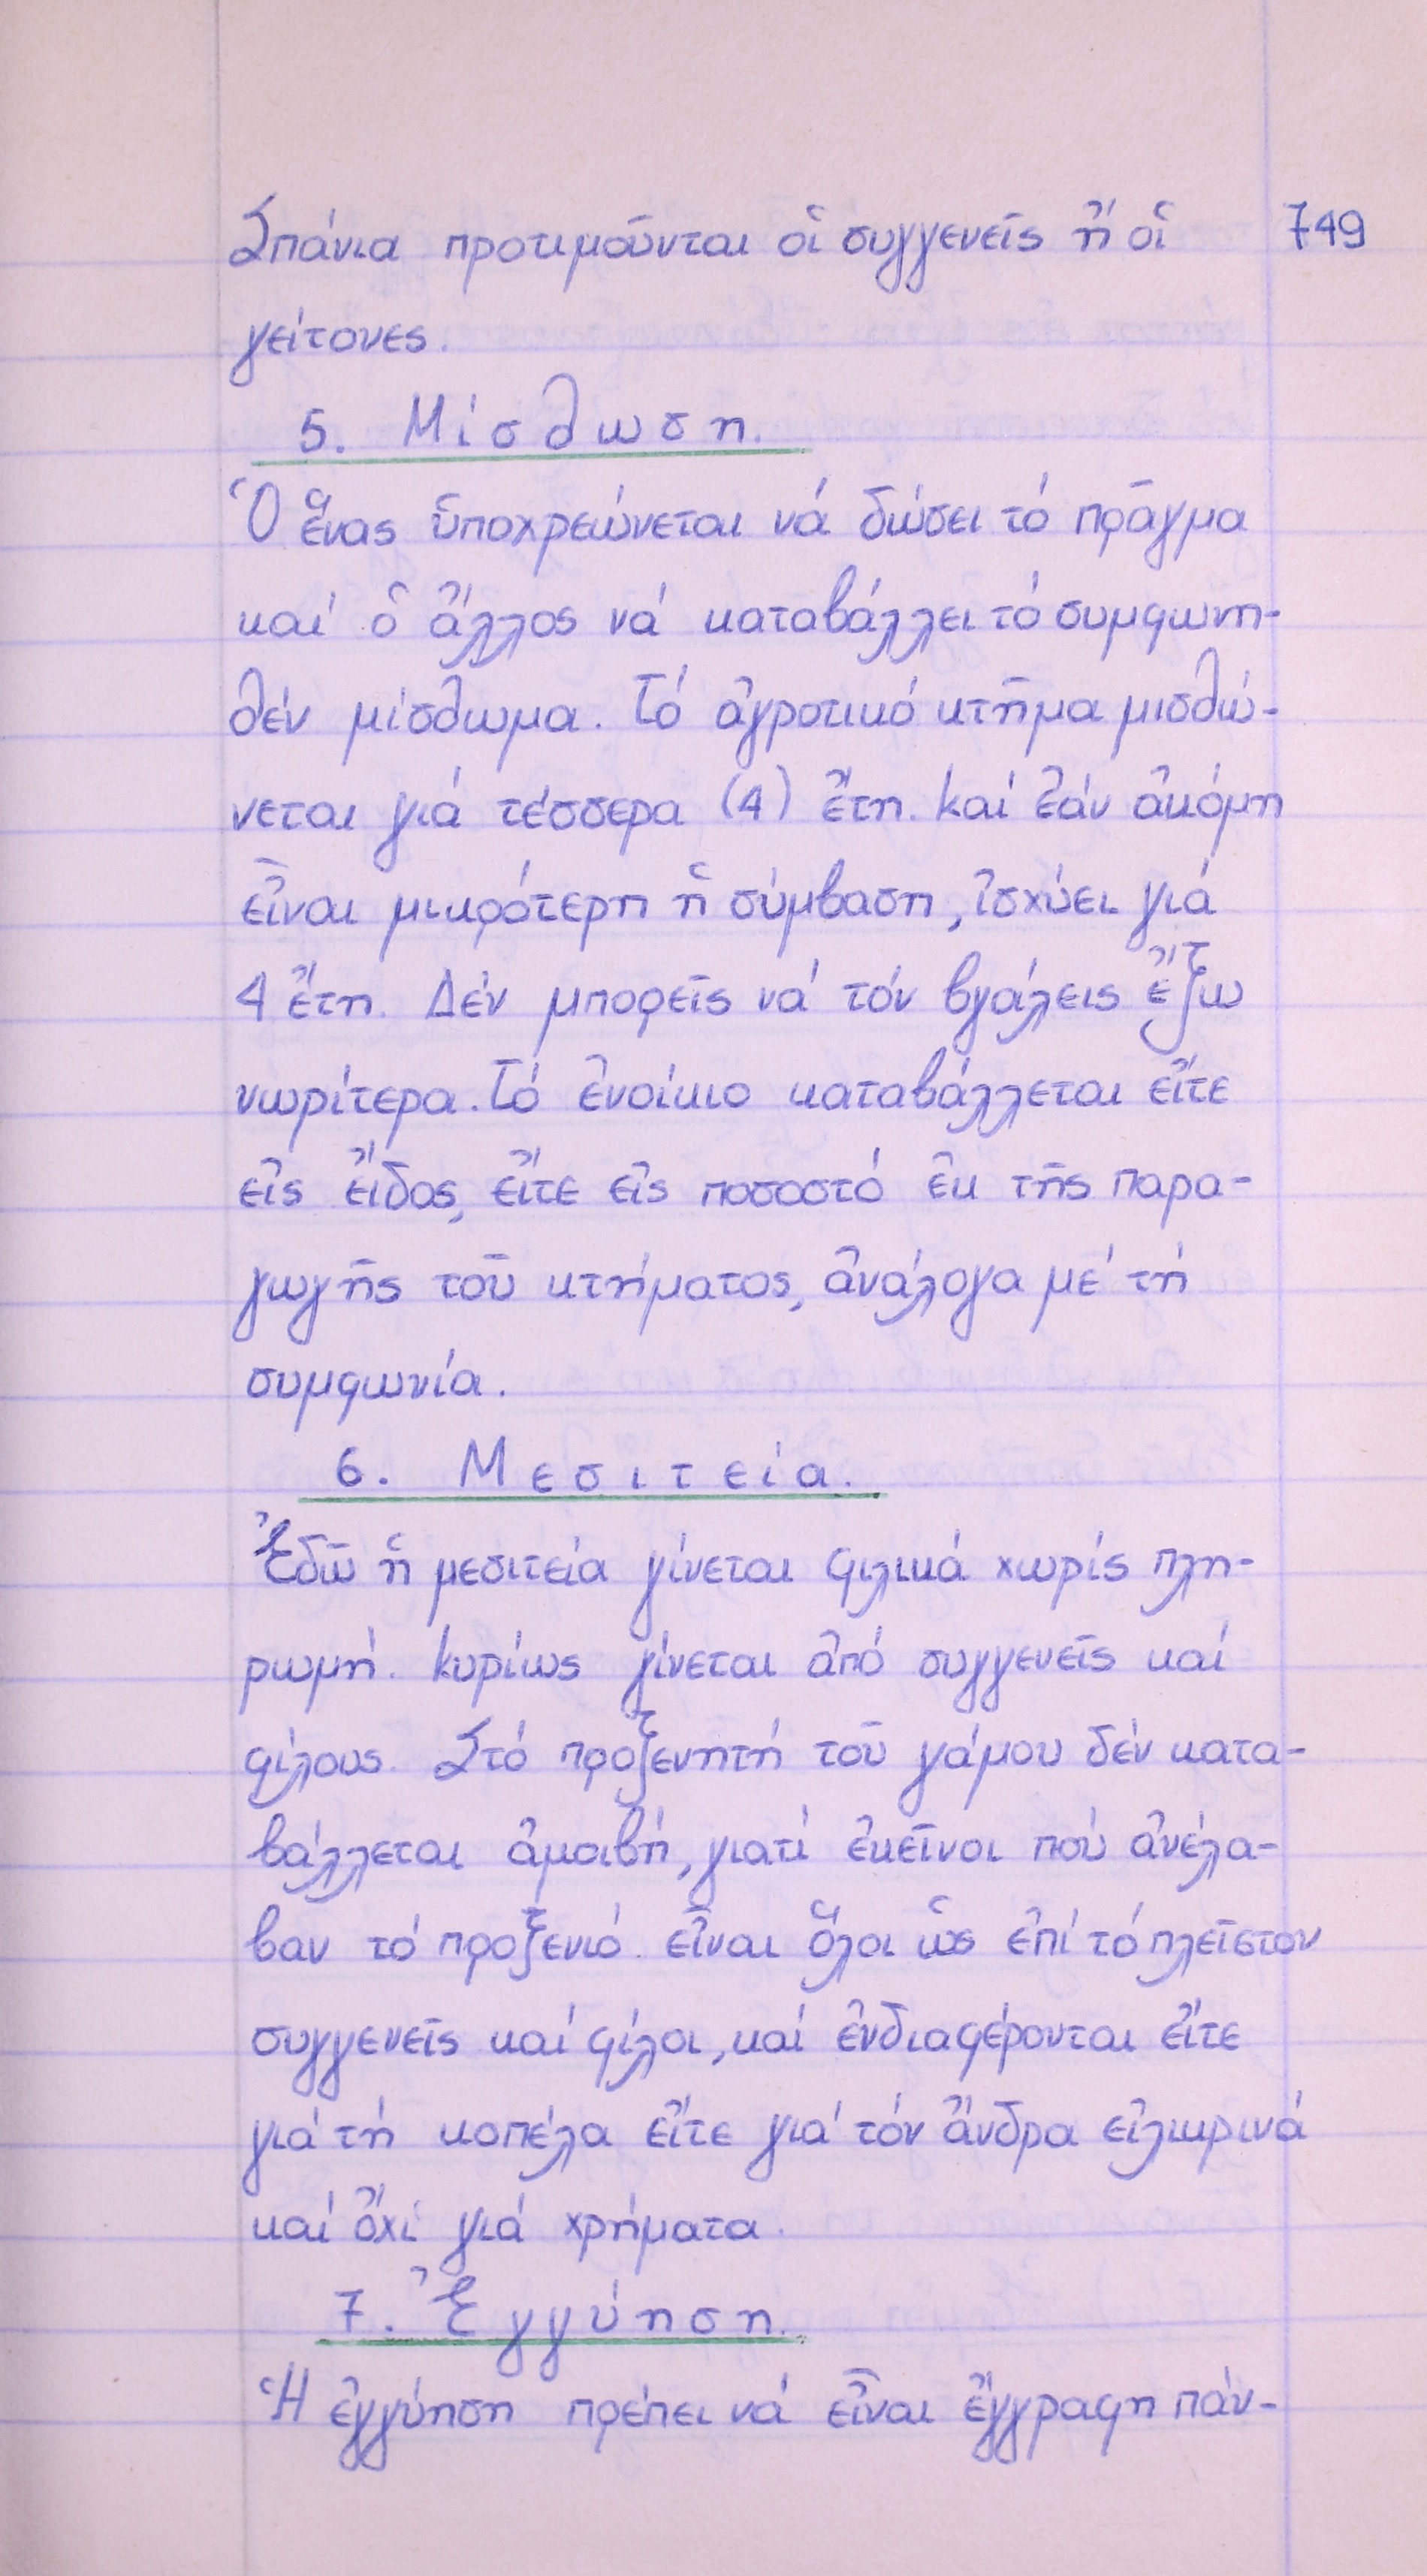 Σπάνια προτιμοῦνται οἱ συγγενεῖς ἤ οἱ 749
γείτονες.
5. Μίσθωση.
Ὁ ἕνας ὑποχρεώνεται νά δώσει τό πρᾶγμα
καί ὁ ἄλλος νά καταβάλλει τό συμφωνη-
θέν μίσθωμα. Τό ἀγροτικό κτῆμα μισθώ-
νεται γιά τέσσερα (4) ἔτη. Καί ἐάν ἀκόμη
εἶναι μικρότερη ἡ σύμβαση, ἰσχύει γιά
4 ἔτη. Δέν μπορεῖς νά τόν βγάλεις ἔξω
νωρίτερα. Τό ἐνοίκιο καταβάλλεται εἴτε
εἰς εἴδος, εἴτε εἰς ποσοστό ἐκ τῆς παρα-
γωγῆς τοῦ κτήματος, ἀνάλογα μέ τή
συμφωνία.
6. Μεσιτεία.
Ἐδῶ ἡ μεσιτεία γίνεται φιλικά χωρίς πλη-
ρωμή. Κυρίως γίνεται ἀπό συγγενεῖς καί
φίλους. Στό προξενητή τοῦ γάμου δέν κατα-
βάλλεται ἀμοιβή, γιατί ἐκεῖνοι πού ἀνέλα-
βαν τό προξενιό. εἶναι ὅλοι ὡς ἐπί τό πλεῖστον
συγγενεῖς καί φίλοι, καί ἐνδιαφέρονται εἴτε
γιά τή κοπέλα εἴτε γιά τόν ἄνδρα εἰλικρινά
καί ὄχί γιά χρήματα.
7. Ἐγγύηση.
Ἡ ἐγγύηση πρέπει νά εἶναι ἔγγραφη πάν-